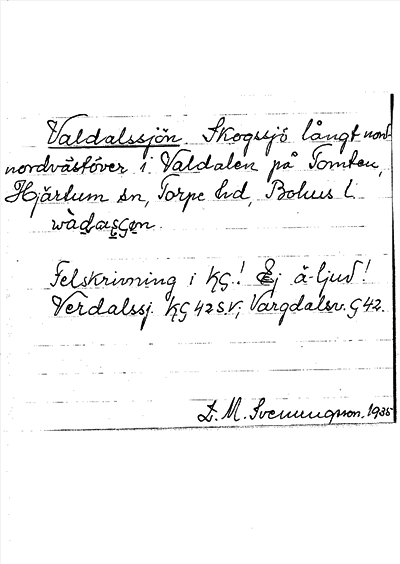 Valdalssjön. Skogssjö långt nord-
nordvästöver i Valdalen på Tomten,
Hjärtum sn, Torpe hd, Bohus l.
Felskrivning i KG.! Ej ä-ljud!
Verdalssj. KG 42 S.V; Vargdalsv. G 42.
L. M. Svenungsson. 1935